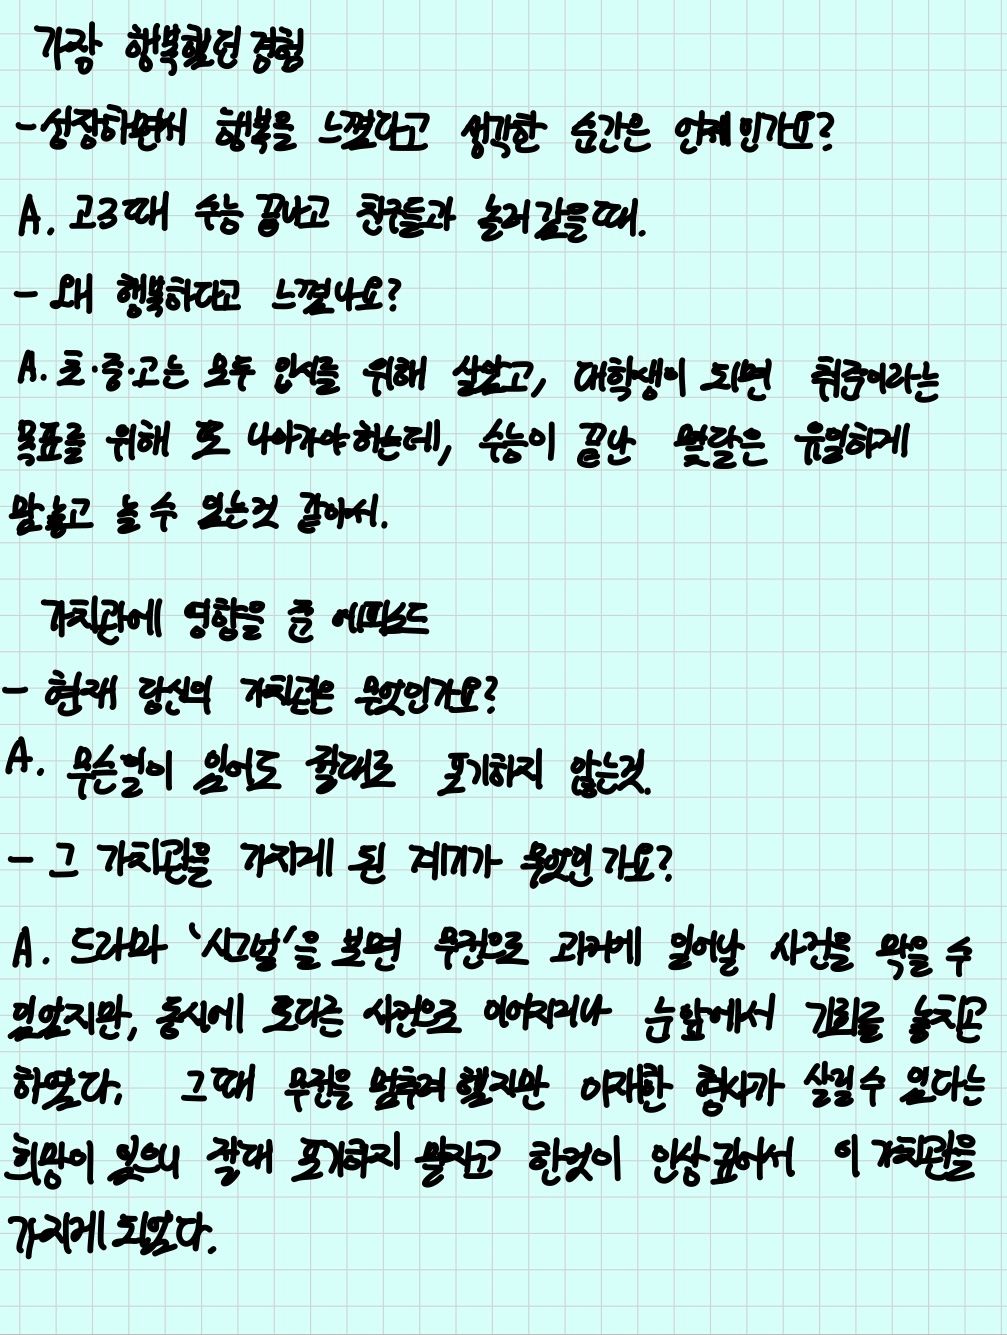 가장 행복했던 경험
- 성장하면서 행복을 느꼈다고 생각한 순간은 언제인가요?
A. 고3때 수능 끝나고 친구들과 놀러갔을때.
- 왜 행복하다고 느꼈나요?
A. 초·중·고는 모두 입시를 위해 살았고, 대학생이 되면 취준이라는
목표를 위해 또 나아가야하는데, 수능이 끝난 몇달은 유일하게
맘놓고 놀 수 있는것 같아서.
가치관에 영향을 준 에피소드
- 현재 당신의 가치관은 무엇인가요?
A. 무슨일이 있어도 절대로 포기하지 않는것.
- 그 가치관을 가지게 된 계기가 무엇인가요?
A. 드라마 '시그널'을 보면 무전으로 과거에 일어날 사건을 막을 수
있었지만, 동시에 또다른 사건으로 이어지거나 눈앞에서 기회를 놓치곤
하였다. 그때 무전을 멈추려 했지만 이재한 형사가 살릴수 있다는
희망이 있으니 절대 포기하지 말자고 한것이 인상깊어서 이 가치관을
가지게 되었다.